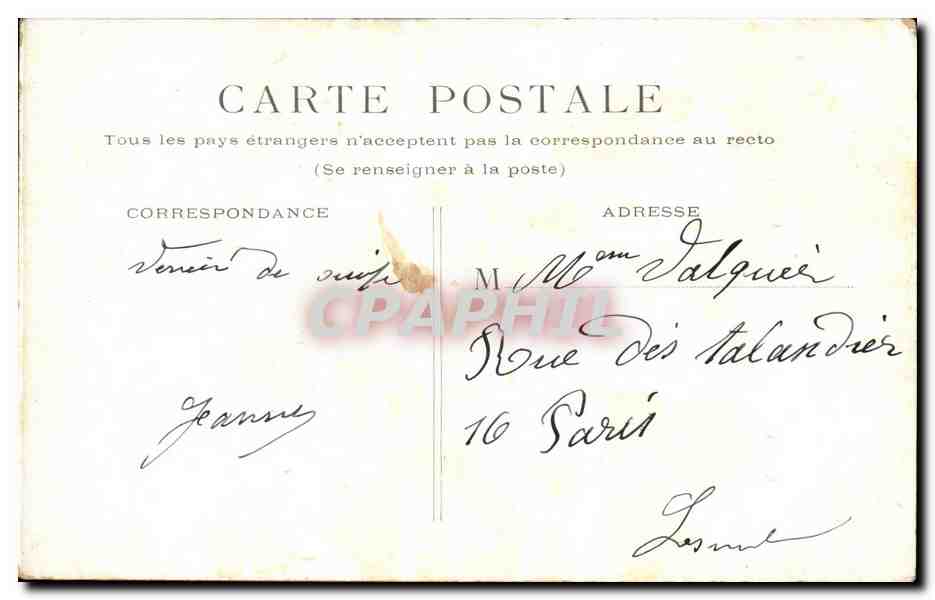 CARTE POSTALE
Tous les pays étrangers n'acceptent pas la correspondance au recto
(Se renseigner à la poste)
CORRESPONDANCE
de
Jeanne
ADRESSE
M Mem Valquier
Rue des talandier
16 Paris
CPAPHIL